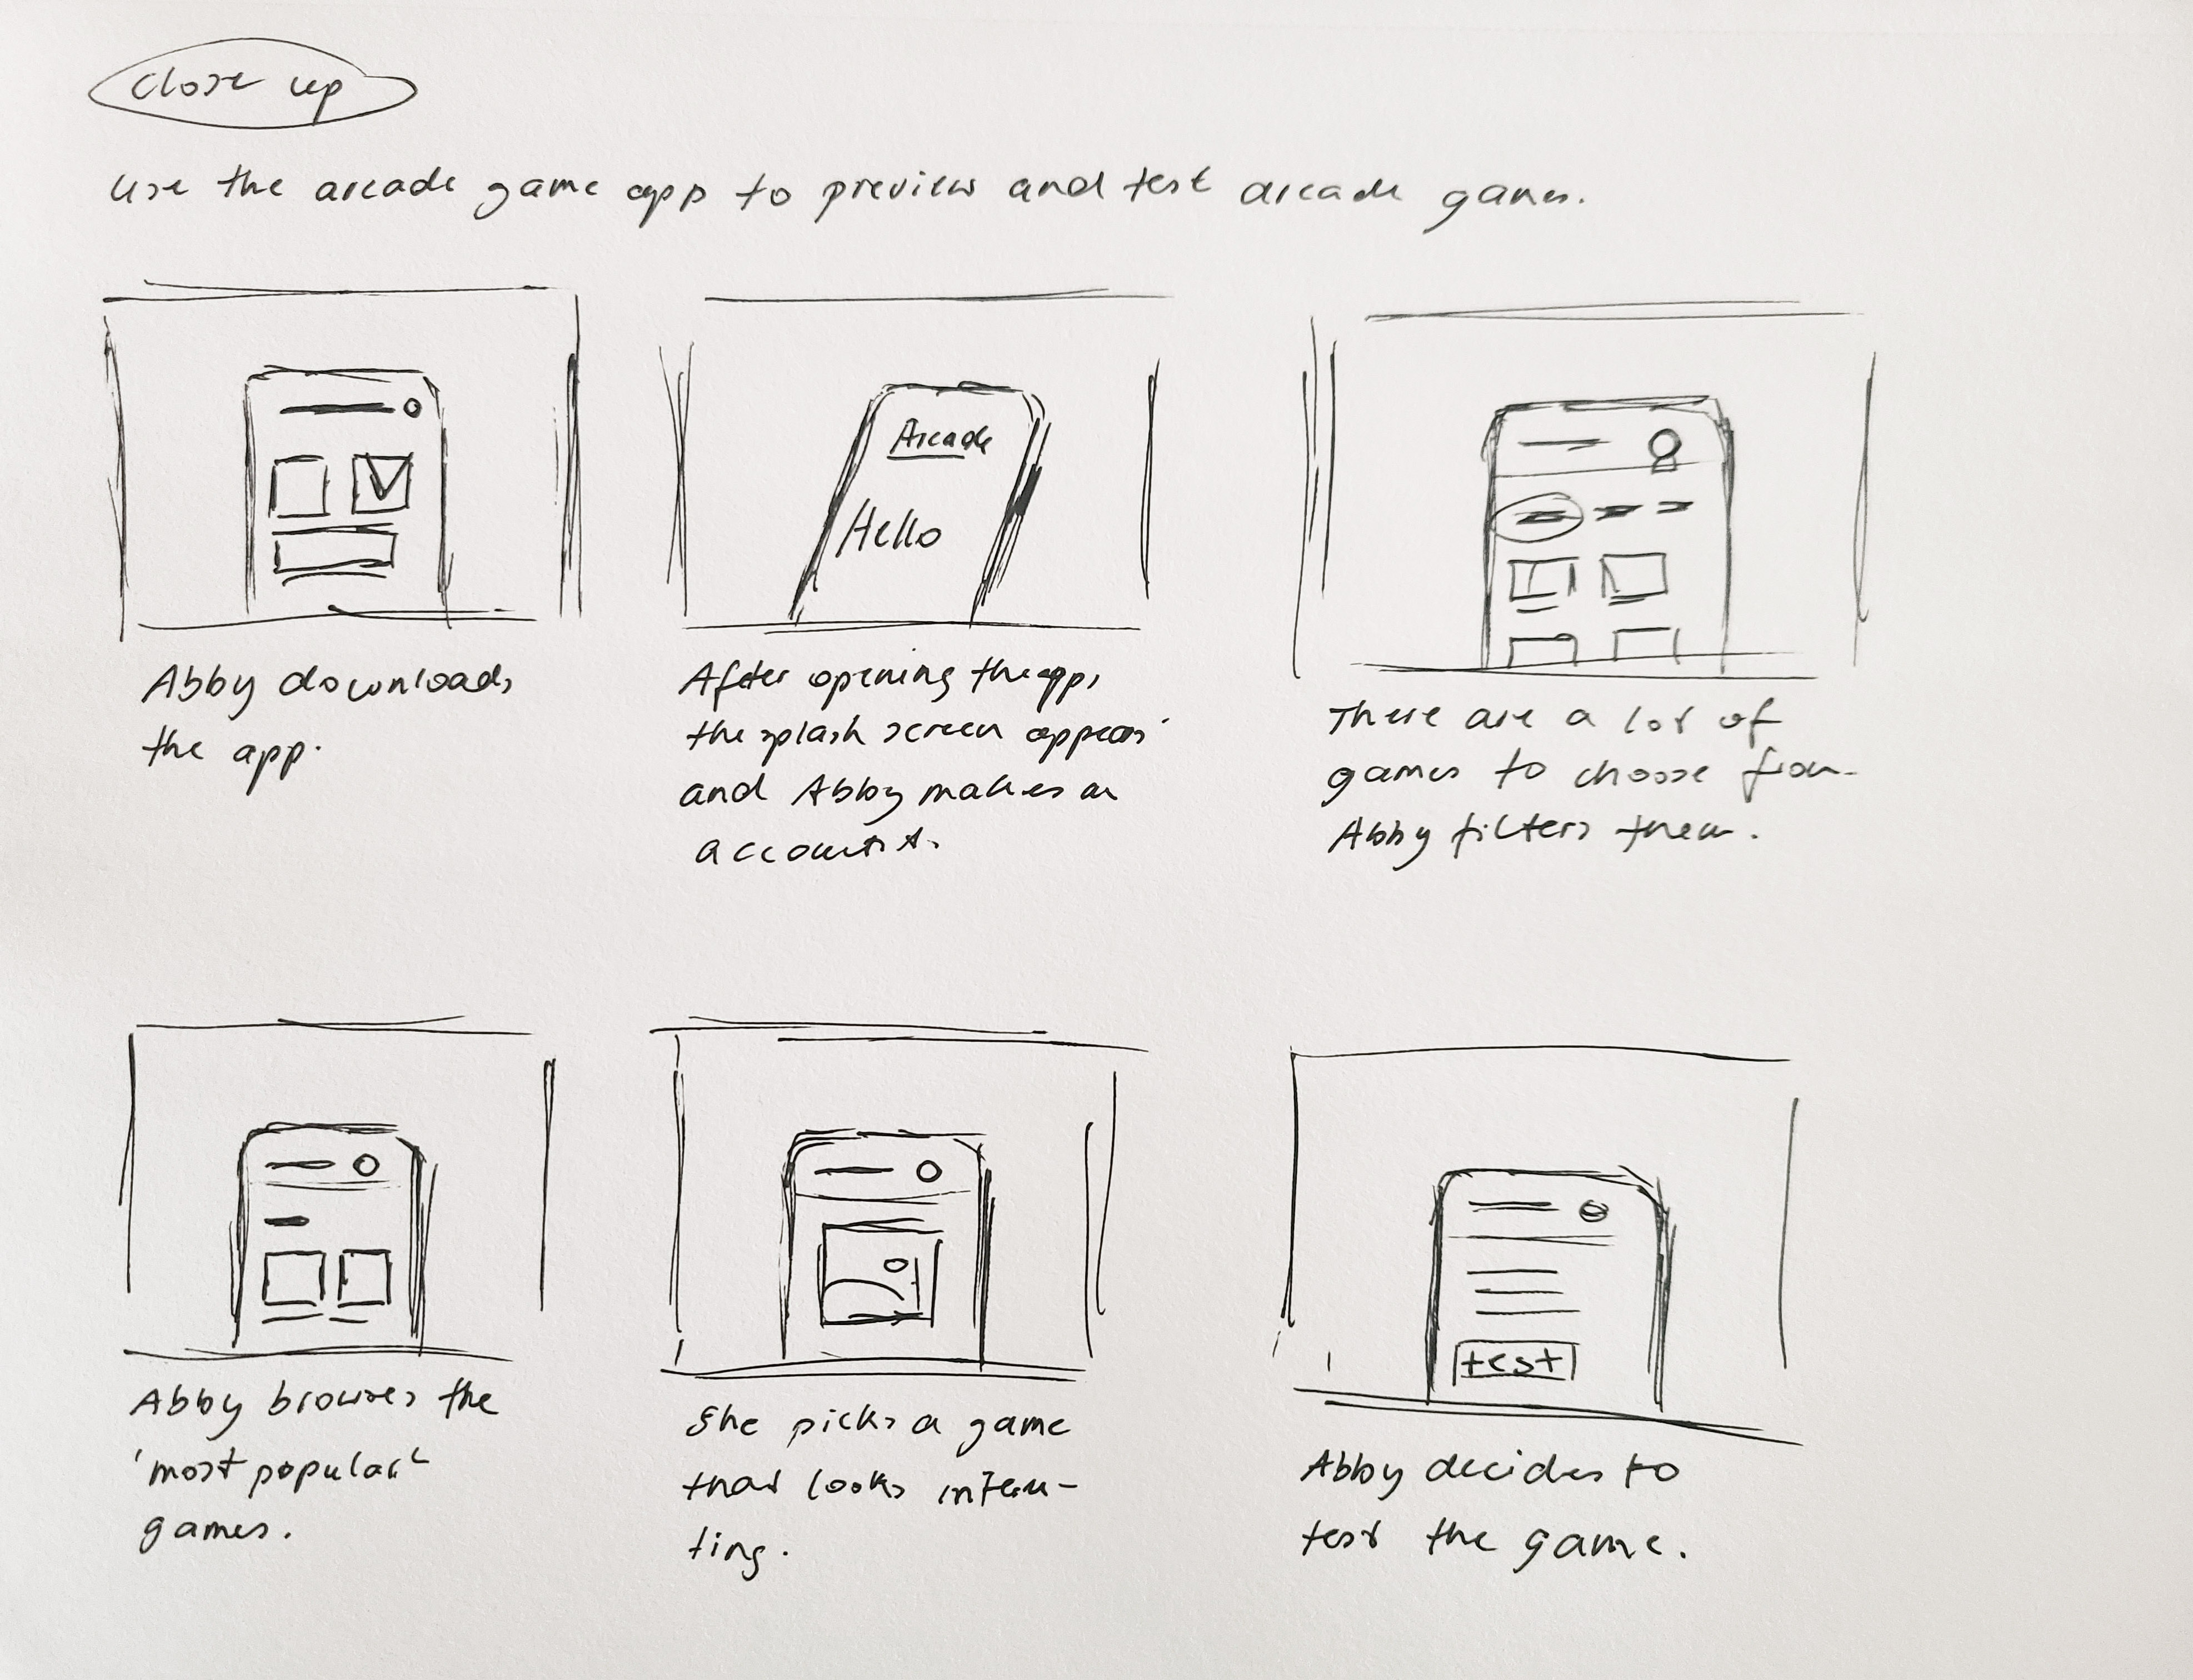 Close up
Use the arcade game app to preview and test arcade games.
Arcade
Hello
Abby downloads
the app.
After opening the app,
the splash screen appears
and Abby makes an
account.
There are a lot of
games to choose from.
Abby filters them.
test
Abby browses the
'most popular'
games.
She picks a game
that looks interes-
ting.
Abby decides to
test the game.